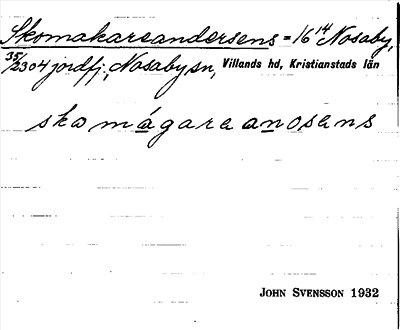 Skomakareandersens = 16¹⁴ Nosaby,
35/2304 jordfj., Nosaby sn, Villands hd, Kristianstads län
skomágaraanosens
JOHN SVENSSON 1932